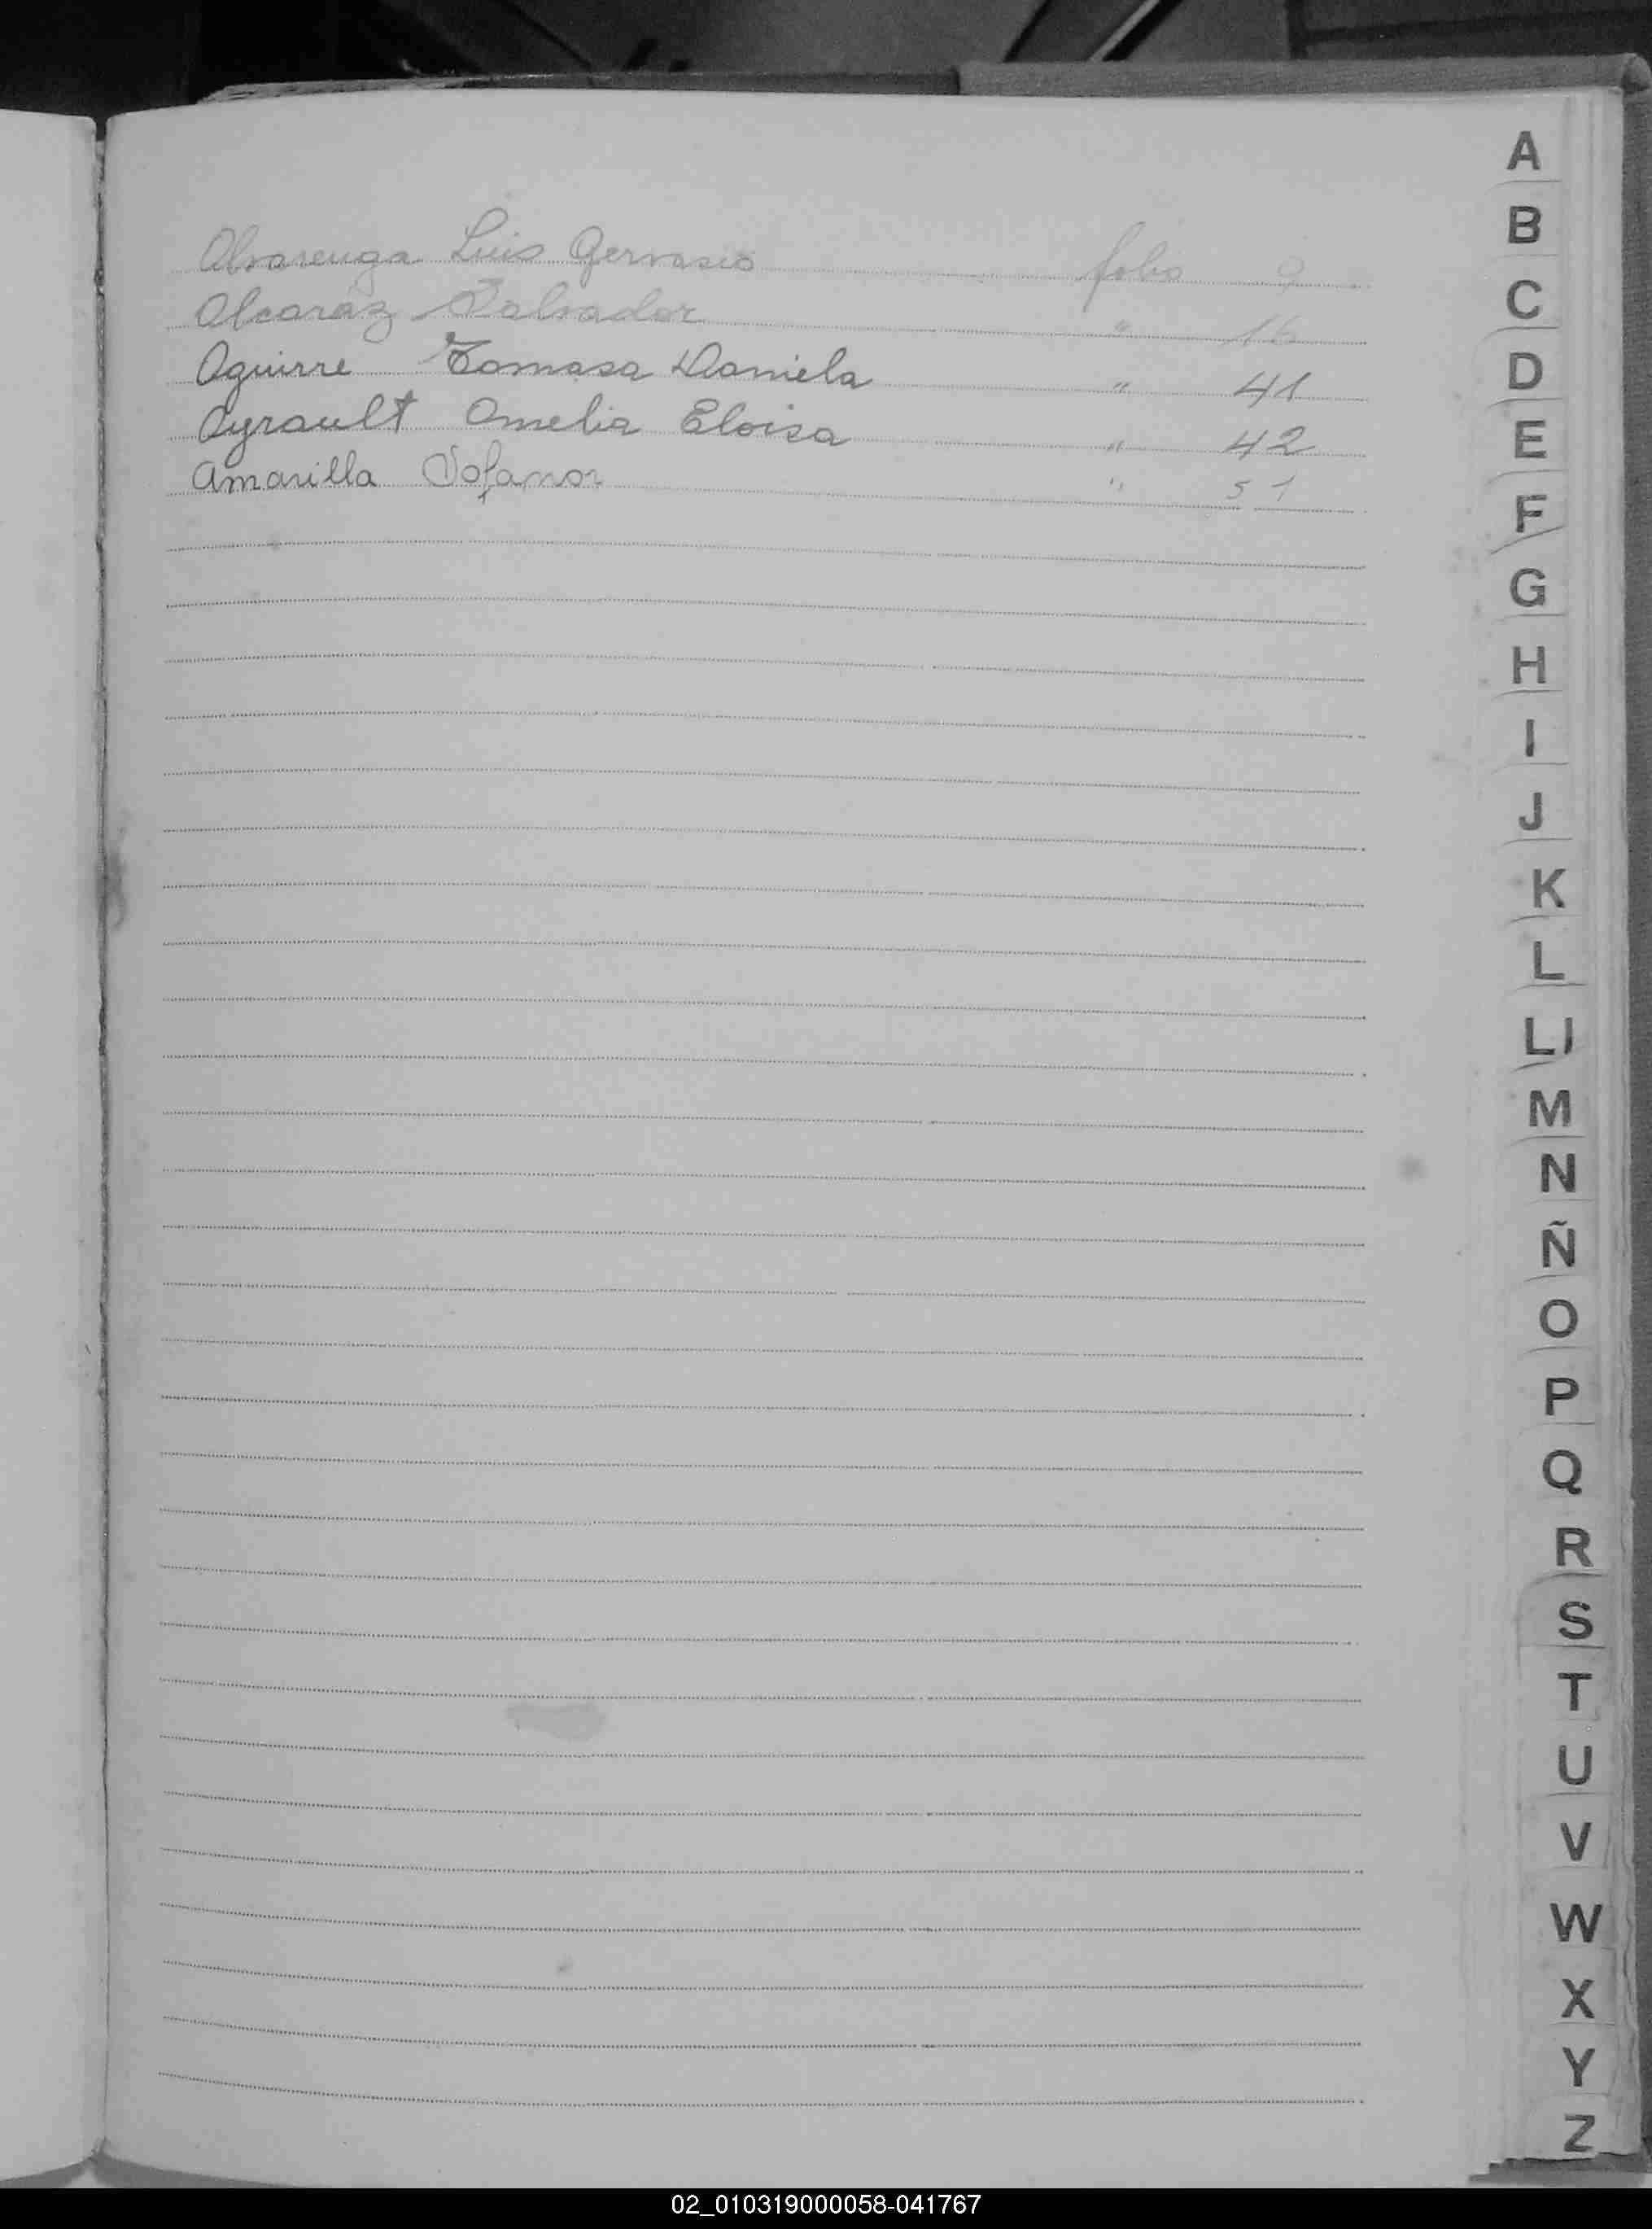 Alvarenga Luis Gervasio folio 9
Alcaráz Salvador " 16
Aguirre Tomasa Daniela " 41
Ayrault Amelia Eloisa " 42
Amarilla Sofanor " 51
A
B
C
D
E
F
G
H
I
J
K
L
Ll
M
N
Ñ
O
P
Q
R
S
T
U
V
W
X
Y
Z
02_010319000058-041767